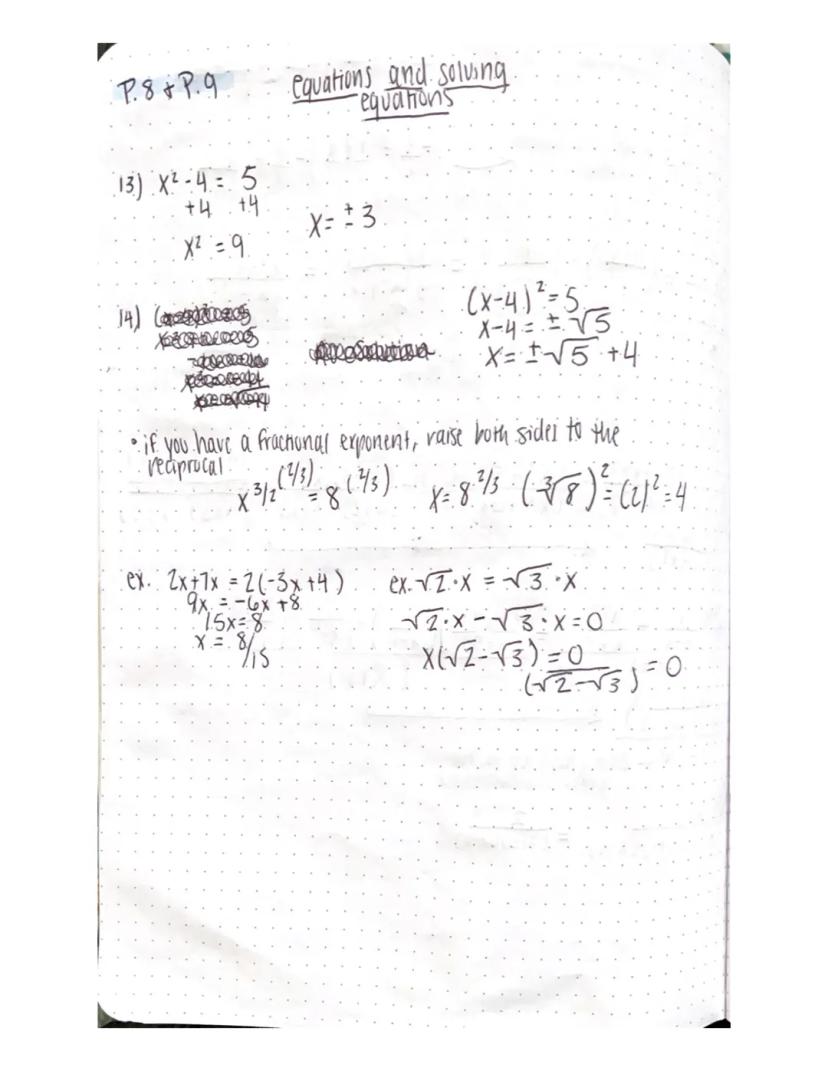 P.8 & P.9
equations and solving
equations
13) x² - 4 = 5
+4 +4
x² = 9
x = ± 3
14)
(x-4)² = 5
x-4 = ± √5
x = ±√5 + 4
• if you have a fractional exponent, raise both sides to the
reciprocal
x^3/2^(2/3) = 8^(2/3) x = 8^2/3 (∛8)² = (2)² = 4
ex. 2x+7x = 2(-3x+4)
9x = -6x +8
15x = 8
x = 8/15
ex. √2 · x = √3 · x
√2 · x - √3 · x = 0
x(√2 - √3) = 0
/(√2 - √3) = 0